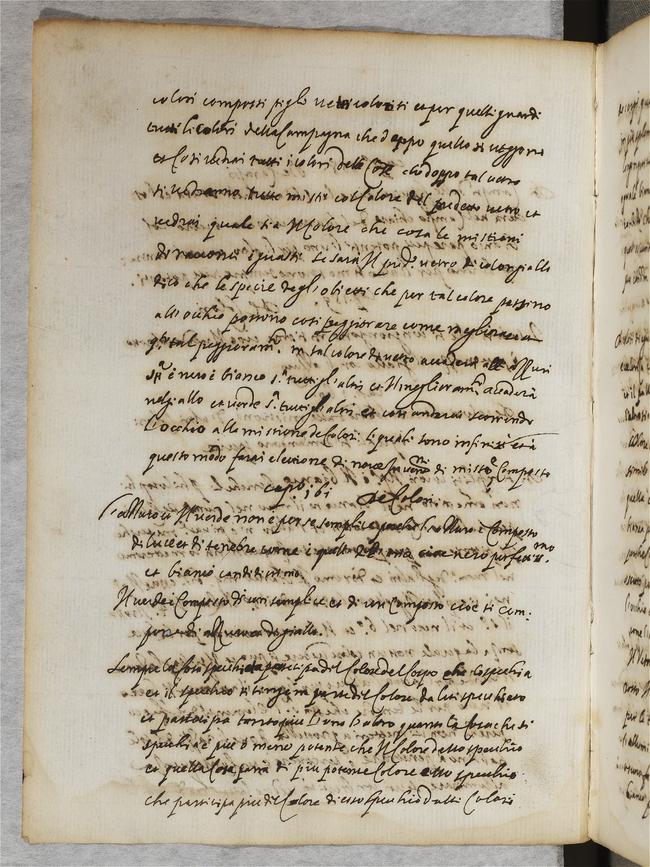 colori composti p gli vetri coloriti et per quelli guardi
tutti li colori della Campagna che doppo quello si veggono
et Cosi vedrai tutti i colori delle Cose che doppo tal vetro
si vedranno tutte misti col Colore del predetto vetro et
vedrai quale sia Il Colore che co la le mistioni
si racconci o guasti se sara Il pred.º vetro di color giallo
dico che le specie degli obietti che per tal colore passino
all'occhio possono cosi peggiorare come megliorare
et tal peggioram.to in tal colore di vetro accadera all'azzurro
et nero e bianco s.ª tutti gli altri et Il meglioram.to accadera
nel giallo et verde s.ª tutti gli altri et cosi anderai scorrendo
L'occhio alle mistioni de Colori li quali sono infiniti et a
questo modo farai elezione di nove Invenzioni di misti et Composti
cap.º 161 De Colori
Azzurro et Il verde non è per se semplice perche l'azzurro è Composto
di luce et di tenebre come è quello dell'aria cioe nero perfettissimo
et bianco candidissimo
Il verde è Composto di un semplice et di un Composto cioe si com-
pone d'azzurro et di giallo.
Sempre la Cosa specchiata partecipa del Colore del Corpo che la specchia
et il specchio si tinge in parte del Colore da lui specchiato
et partecipa tanto più l'uno l'altro quanto la Cosa che si
specchia è più o meno potente che Il Colore dello specchio
et quella Cosa parra di più potente Colore nello specchio
che partecipa più del Colore di esso specchio d'altri Colori